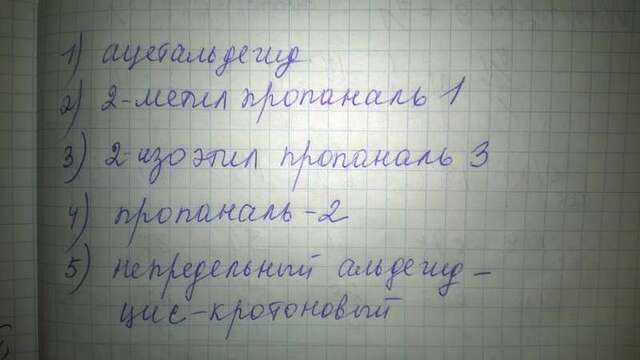 1) ацетальдегид
2) 2-метил пропаналь 1
3) 2-изоэтил пропаналь 3
4) пропаналь-2
5) непредельный альдегид -
цис-кротоновый